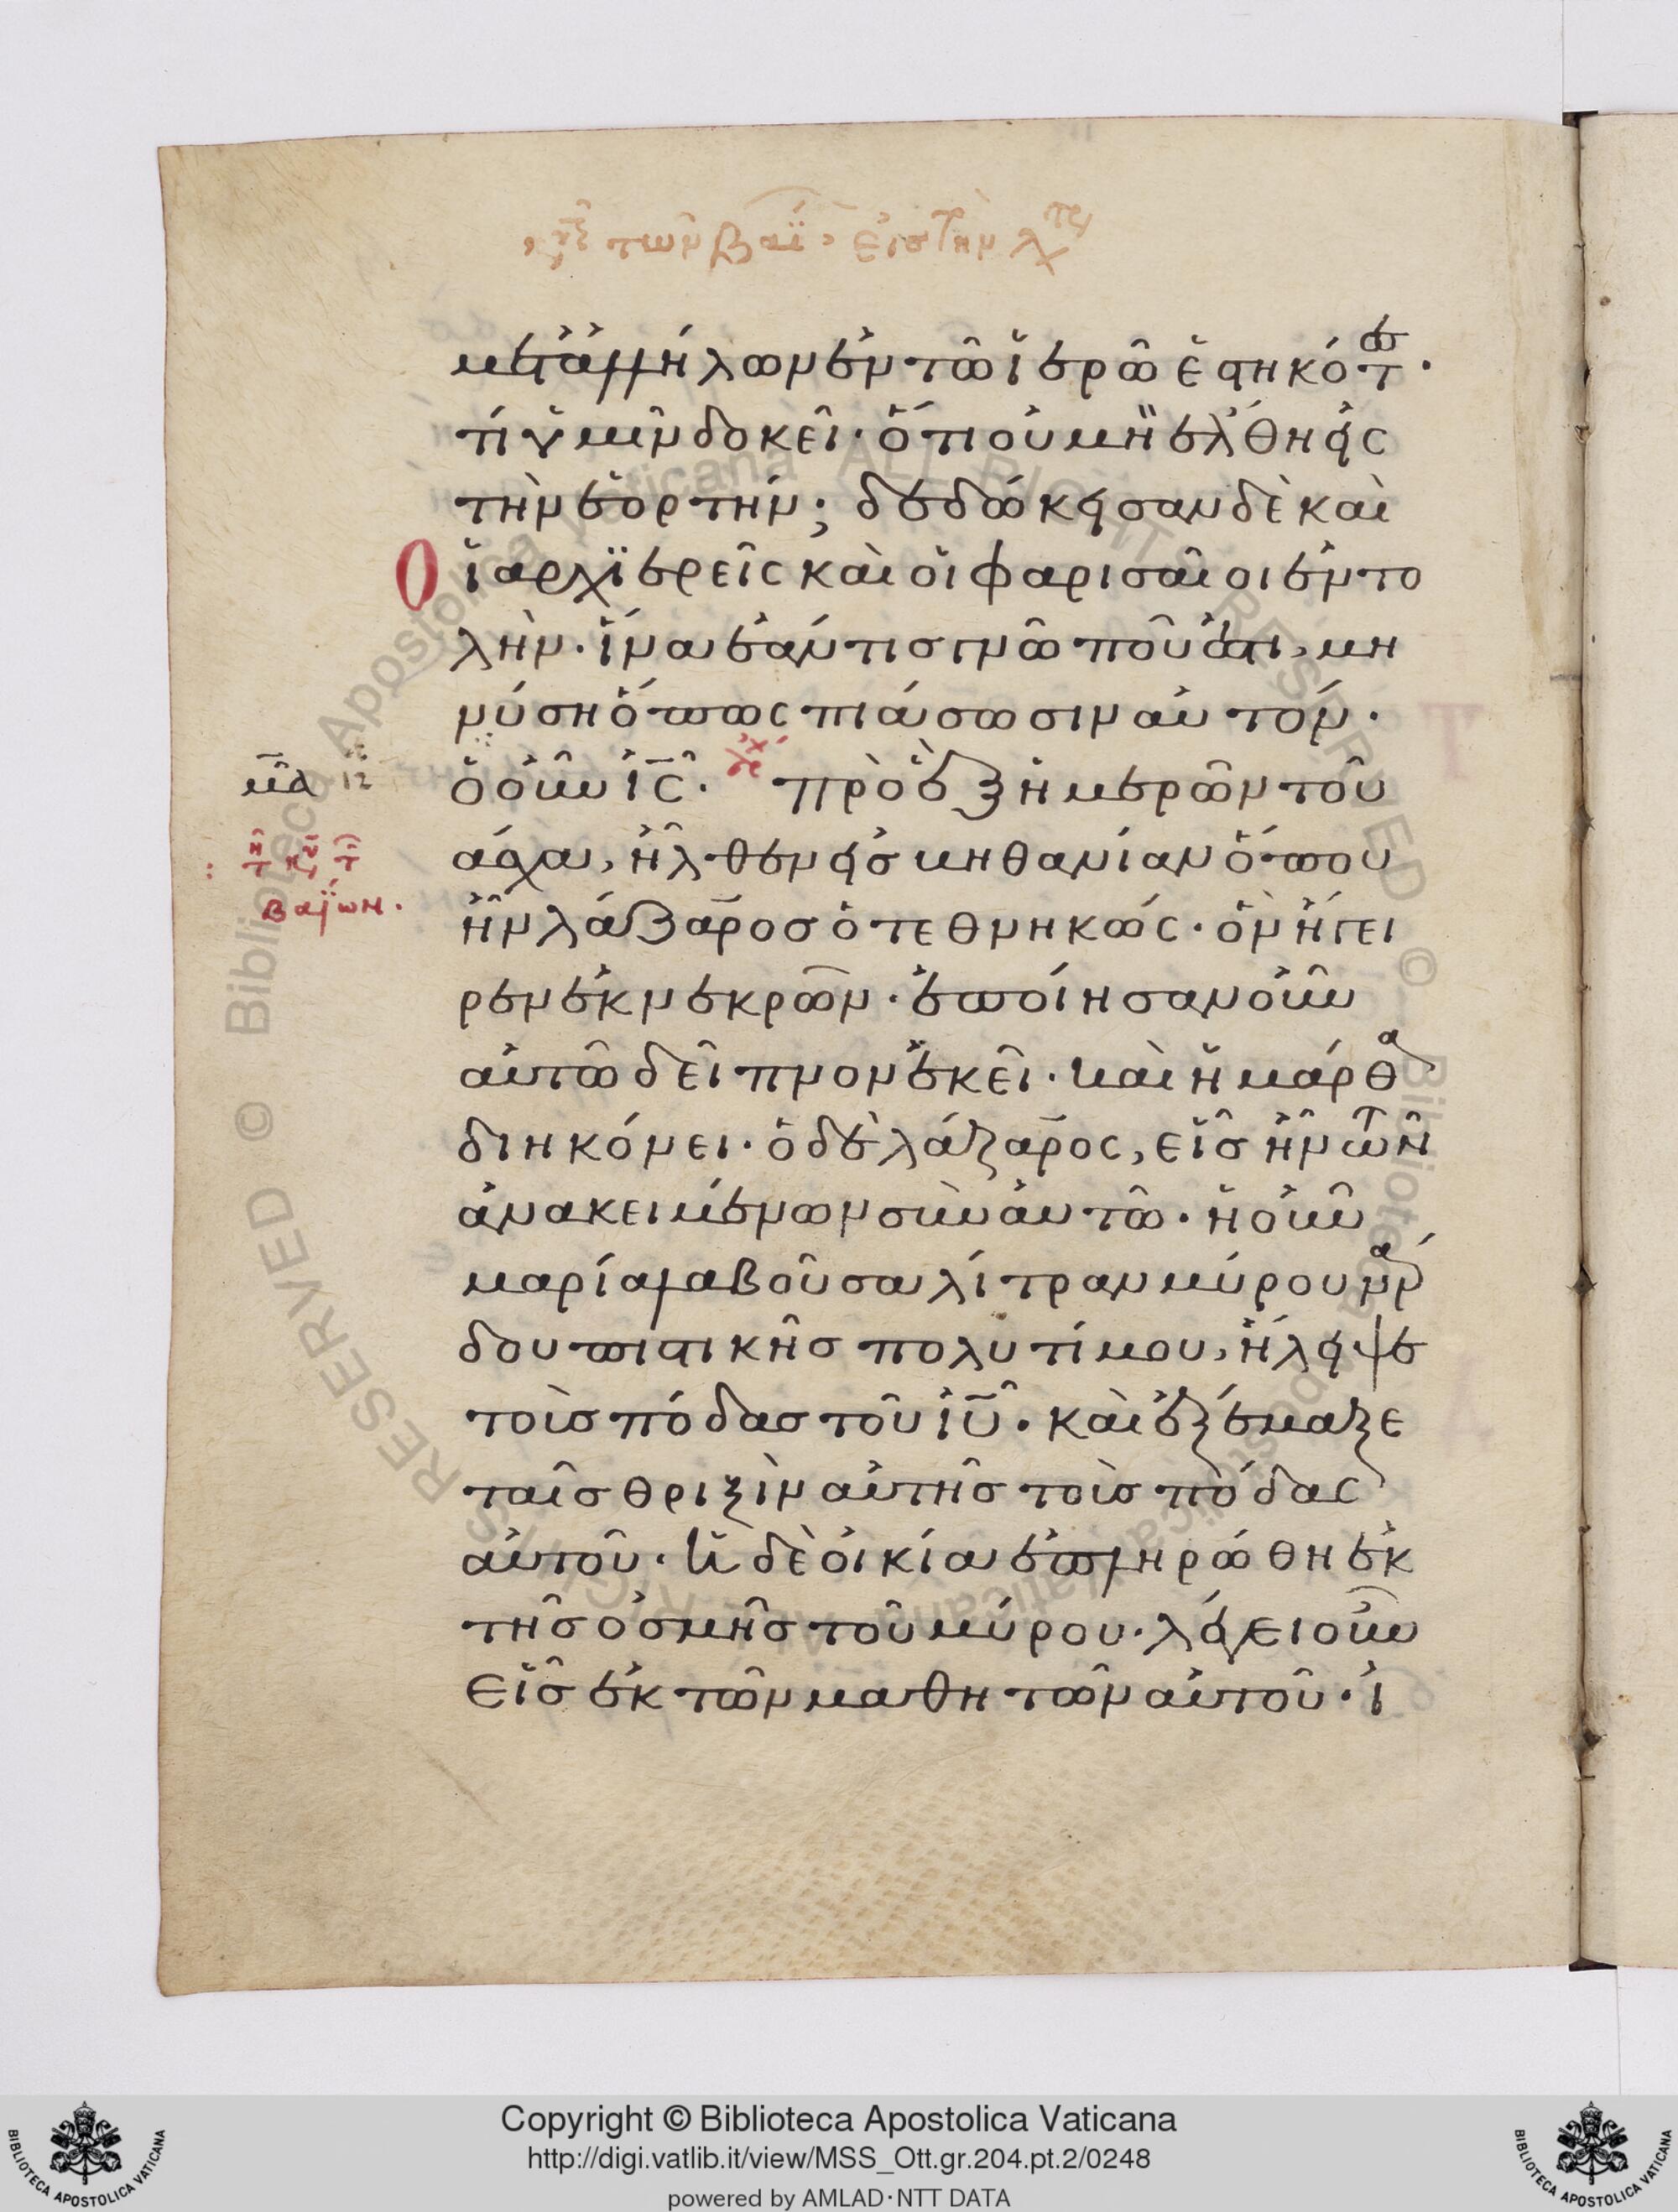 κυ τῶν βαϊ εἰς τὴν λτ
μετ ἀλλήλων ἐν τῶ ἱερῶ ἑστηκότ.
τί ὑμῖν δοκεῖ· ὅτι οὐ μὴ ἔλθη εἰς
τὴν ἑορτήν; δεδώκεισαν δὲ καὶ
Οἱ αρχϊερεῖς καὶ οἱ φαρισαῖοι ἐντο
λὴν· ἵνα ἐάν τις γνῶ ποῦ ἐστι, μη
νύση ὅπως πιάσωσιν αὐτόν·
μδ ιβ ὁ οὖν ις̅· ἀρχ πρὸ ἓξ ἡμερῶν τοῦ
: τῆ κυ τ πάσχα, ἦλθεν εἰς βηθανίαν ὅπου
βαΐων. ἦν λάζαρος ὁ τεθνηκώς· ὃν ἤγει
ρεν ἐκ νεκρῶν· ἐποίησαν οὖν
αὐτῶ δεῖπνον ἐκεῖ· καὶ ἡ μάρθα
διηκόνει· ὁ δὲ λάζαρος, εἷς ἦν τῶν
ἀνακειμένων σὺν αὐτῶ· ἡ οὖν
μαρία λαβοῦσα λίτραν μύρου νάρ
δου πιστικῆς πολυτίμου, ἤλειψε
τοὺς πόδας τοῦ ιυ̅· καὶ ἐξέμαξε
ταῖς θριξὶν αὐτῆς τοὺς πόδας
αὐτοῦ· ἡ δὲ οἰκία ἐπληρώθη ἐκ
τῆς ὀσμῆς τοῦ μύρου· λέγει οὖν
εἷς ἐκ τῶν μαθητῶν αὐτοῦ· ἰ
Copyright © Biblioteca Apostolica Vaticana
http://digi.vatlib.it/view/MSS_Ott.gr.204.pt.2/0248
powered by AMLAD·NTT DATA
BIBLIOTECA APOSTOLICA VATICANA
BIBLIOTECA APOSTOLICA VATICANA